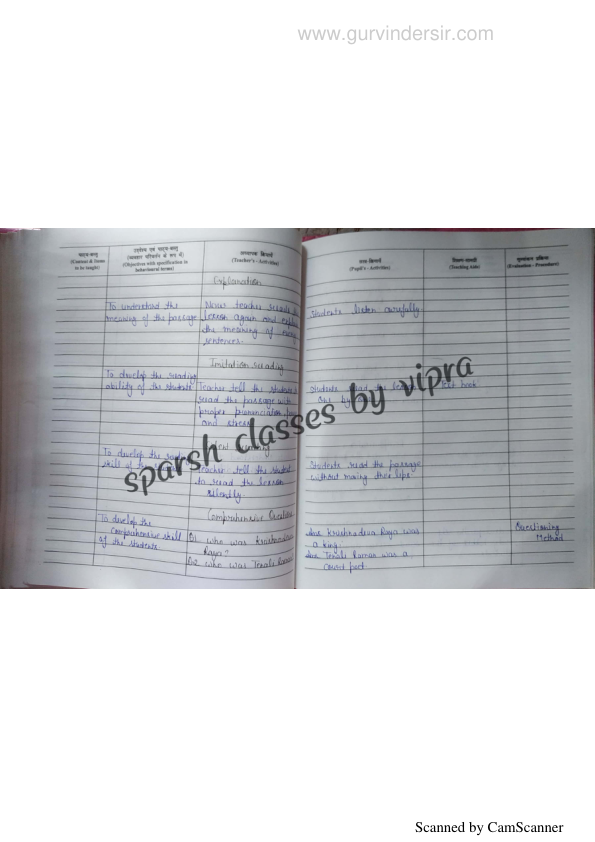 www.gurvindersir.com
पाठ्य-वस्तु
(Content & Items
to be taught)
उद्देश्य एवं पाठ्य-वस्तु
(व्यवहार परिवर्तन के रूप में)
(Objectives with specification in
behavioural terms)
अध्यापक क्रियायें
(Teacher's - Activities)
छात्र-क्रियायें
(Pupil's - Activities)
शिक्षण-सामग्री
(Teaching Aids)
मूल्यांकन प्रक्रिया
(Evaluation - Procedure)
Explanation
To understand the
meaning of the passage
Now teacher reads
lesson again and
the meaning of
sentences.
Students listen carefully
Imitation reading
To develop the reading
ability of the students
Teacher tell the students
read the passage with
proper pronunciation
and stress
Students read the
one by
Text book
reading
To develop the
skill of the
teacher tell the student
to read the lesson
silently.
Students read the passage
without moving their lips.
Comprehensive
To develop the
Comprehensive skill
of the students
Q1. who was Krishnadeva
Raya?
Q2. who was Tenali Raman
Ans Krishnadeva Raya was
a king.
Ans Tenali Raman was a
court poet
Questioning
Method
sparsh classes by vipra
Scanned by CamScanner